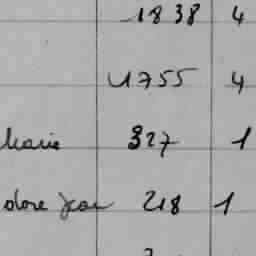 1838 4
1755 4
Marie 327 1
dore Jean 218 1